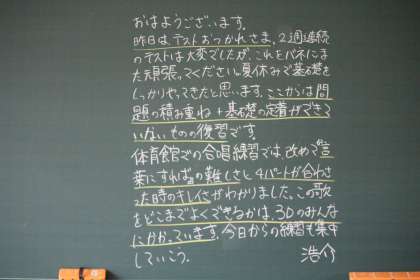 おはようございます。
昨日はテストおつかれさま。2週連続
のテストは大変でしたが、これをバネにま
た頑張ってください。夏休みで基礎を
しっかりやってきたと思います。ここからは問
題の積み重ね+基礎の定着ができて
いないものの復習です。
体育館での合唱練習では、改めて言
葉にすればの難しさと4パートが合わさ
った時のキレイさがわかりました。この歌
をどこまでよくできるかは、3Dのみんな
にかかっています。今日からの練習も集中
していこう。 浩介